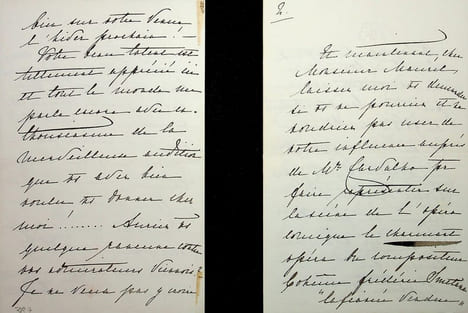 bien sur votre venue
l'hiver prochain! —
Votre beau talent est
tellement apprécié ici
et tout le monde me
parle encore avec en-
thousiasme de la
merveilleuse audition
que vs avez bien
voulu vs donner chez
moi ........ Auriez vs
quelque rancune contre
vos admirateurs viennois?
Je ne veux pas y croire
2.
Et maintenant, cher
Monsieur Maurel,
laissez moi vs demander
si vs ne pourriez et ne
voudriez pas user de
votre influence auprès
de Mr. Carvalho pr
faire représenter sur
la scène de l'opéra
comique le charmant
opéra du compositeur
Bohême Frédéric Smetana
"la fiancée vendue"